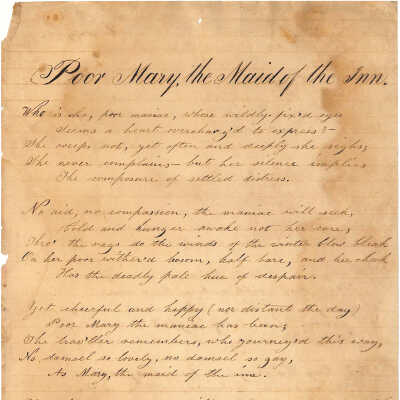 Poor Mary, the Maid of the Inn.
Who is she, poor maniac, whose wildly-fix'd eyes
Seems a heart overcharg'd to express?—
She weeps not, yet often and deeply she sighs;
She never complains— but her silence implies
The composure of settled distress.
No aid, no compassion, the maniac will seek,
Cold and hunger awake not her care;
Thro' the rags do the winds of the winter blow bleak
On her poor wither'd bosom, half bare, and her cheek
Has the deadly pale hue of despair.
Yet cheerful and happy (nor distant the day)
Poor Mary the maniac has been;
The trav'ller remembers, who journeyed this way,
No damsel so lovely, no damsel so gay,
As Mary, the maid of the inn.